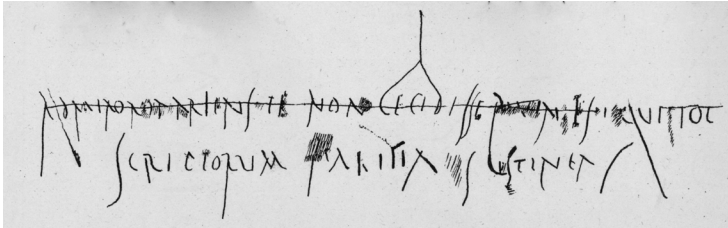 ADMIROR O PARIENS TE NON CECIDISSE RUINIS QUI TOT
SCRIPTORUM TAEDIA SUSTINEAS